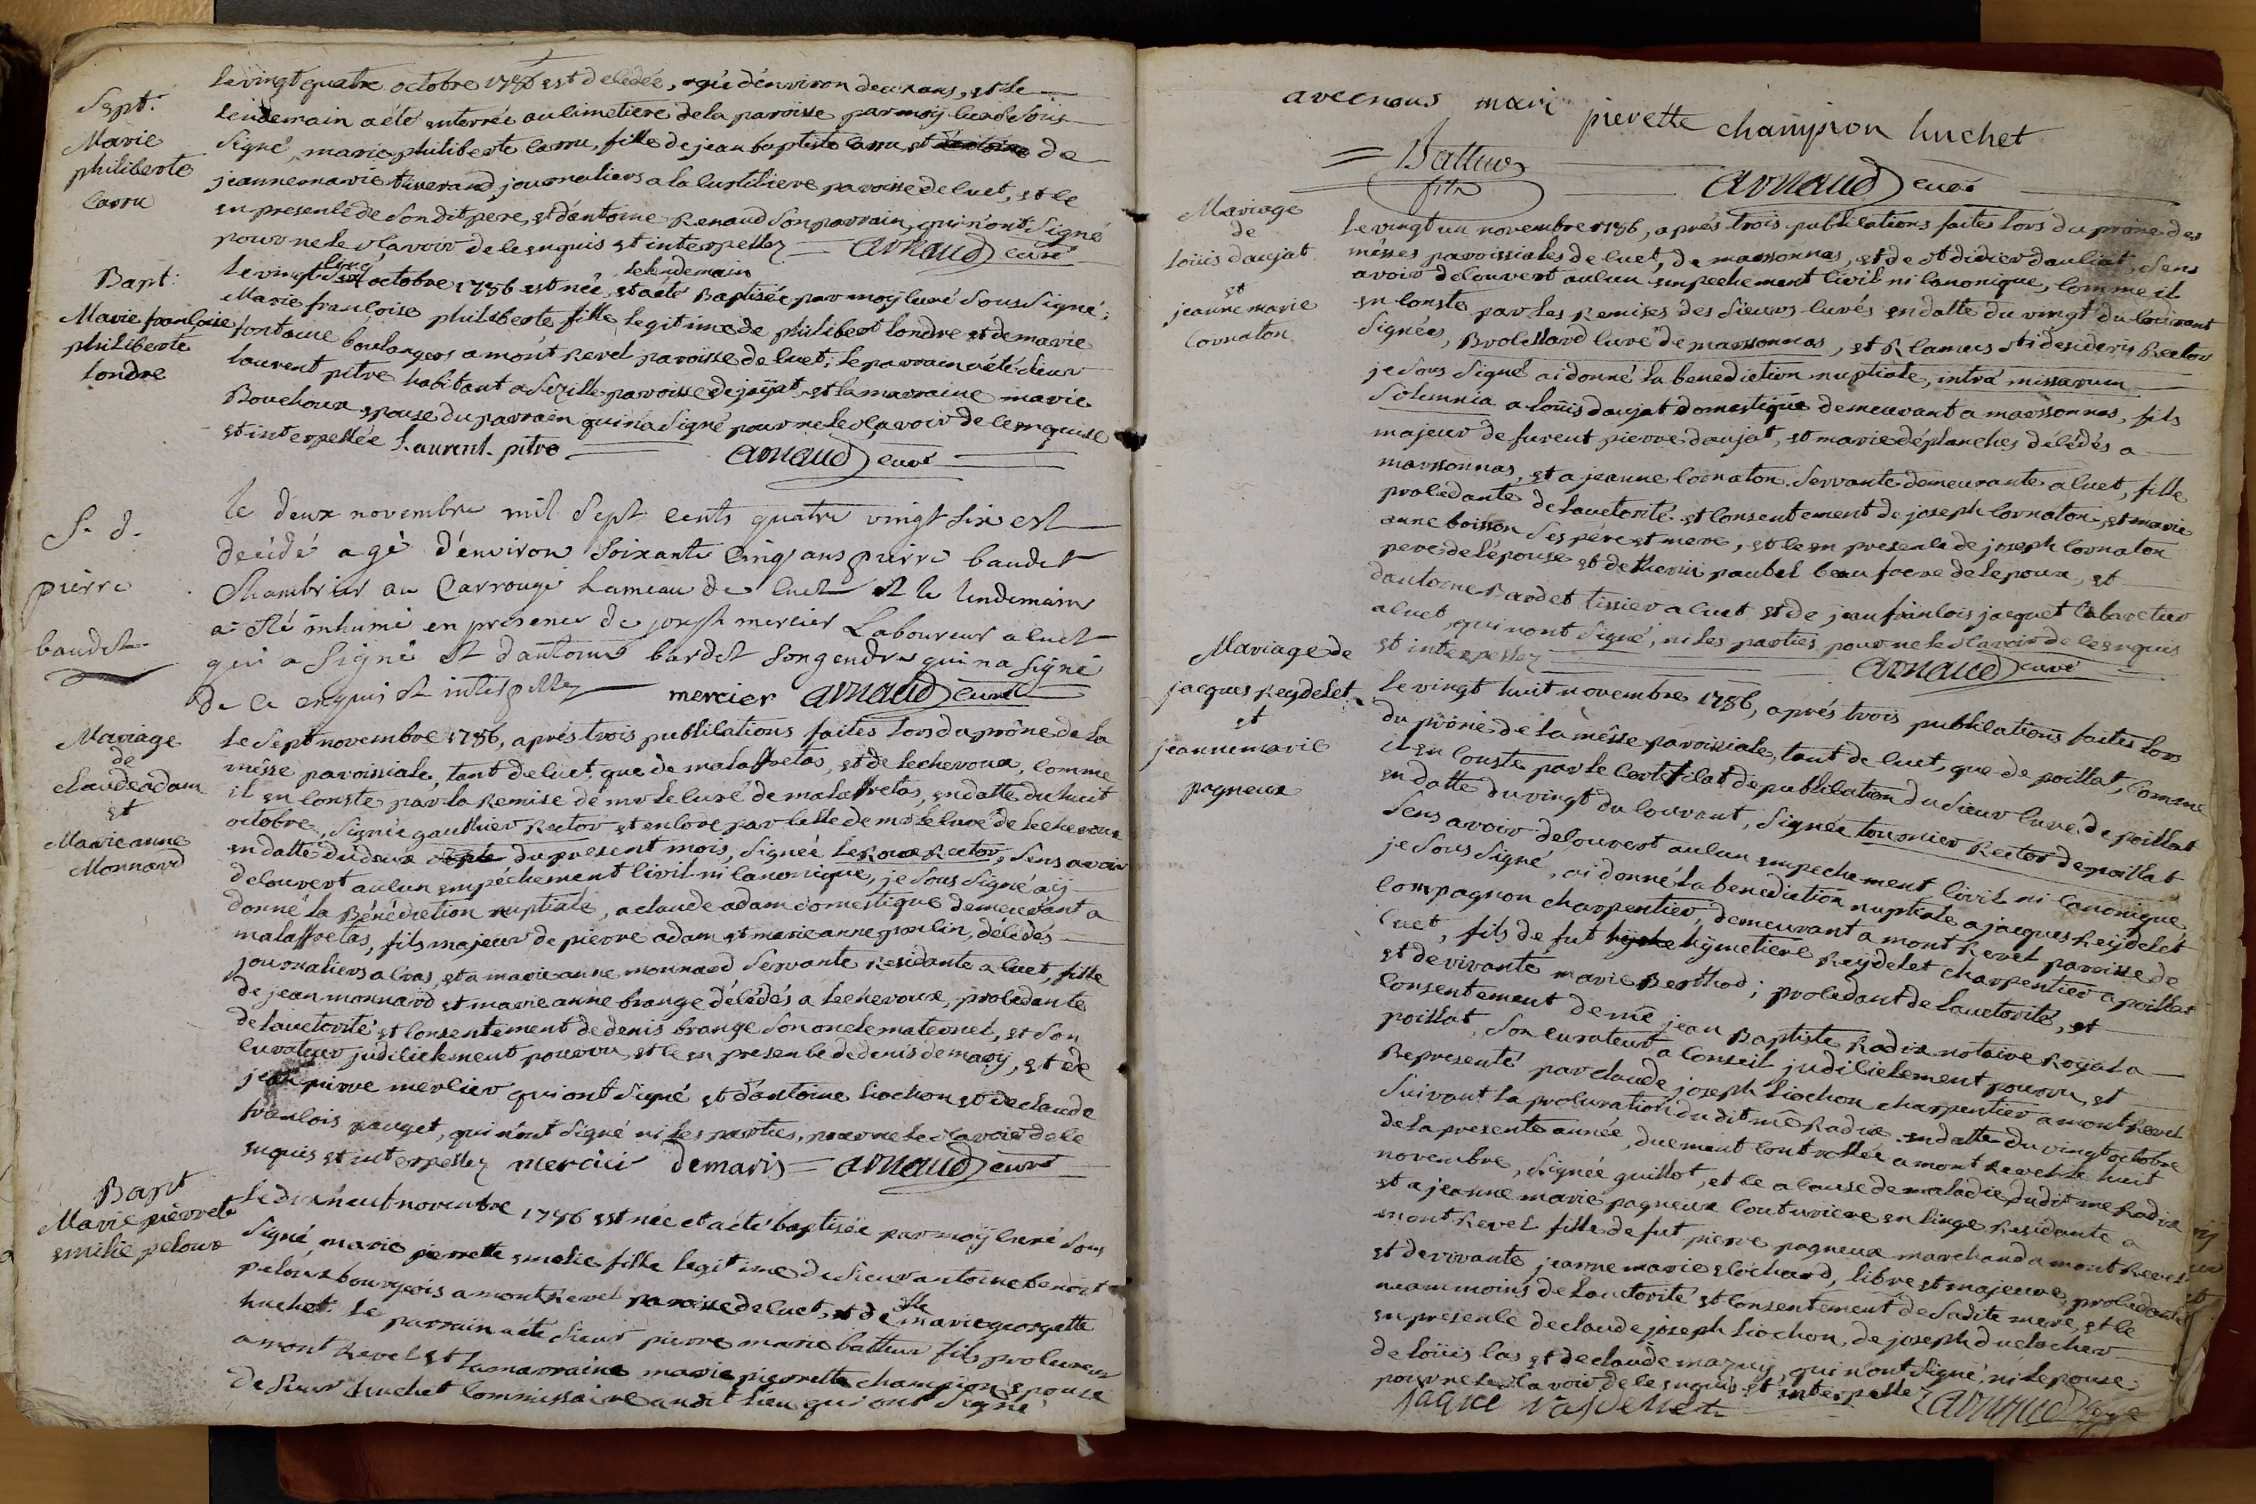 Sept.
Marie
philiberte
Carru
le vingt quatre octobre 1786 est décédée, agée d'environ deux ans, et le
lendemain a été enterrée au cimetiere de la paroisse par moÿ curé sous
signé, marie philiberte carru, fille de jean baptiste carru, et de
jeanne marie tiverand journaliers a la curtiliere paroisse de cuet, et ce
en presence de son dit pere, et d'antoine Renaud son parrain, qui n'ont signé
pour ne le sçavoir de ce enquis et interpellez arnaud curé
Bapt:
Marie françoise
philiberte
Condre
le vingt cinq octobre 1786 est née, et a été le lendemain Baptisée par moÿ curé sous signé,
Marie françoise philiberte fille legitime de philibert Condre et de marie
fontaine boulangers a mont Revel paroisse de cuet; le parrain a été sieur
laurent pitre habitant a Sezille paroisse de jaÿat, et la marraine marie
Bouchoux epouse du parrain qui n'a signé pour ne le sçavoir de ce enquise
et interpellée Laurent pitre arnaud curé
S. d.
pierre
baudet
le deux novembre mil sept cents quatre vingt six est
décédé agé d'environ soixante cinq ans pierre baudet
Chambrier au Carrouge hameau de cuet et le lendemain
a été inhumé en presence de joseph mercier Laboureur a cuet
qui a signé et d'antoine bardet son gendre qui n'a signé
de ce enquis et interpellez mercier arnaud curé
Mariage
de
claude adam
et
Marie anne
Monnard
le sept novembre 1786, aprés trois publications faites lors du prône de la
mêsse paroissiale, tant de cuet, que de malaffretas, et de lecheroux, comme
il en conste par la Remise de mr le curé de malaffretas, en datte du huit
octobre, signée gauthier Rector et encore par celle de mr le curé de lecheroux
en datte du deux du present mois, signée leRoux Rector, sens avoir
decouvert aucun empéchement civil ni canonique, je sous signé aÿ
donné la Bénédiction nuptiale, a claude adam domestique demeurant a
malaffretas, fils majeur de pierre adam et marie anne goulin, décédés
journaliers a cras, et a marie anne monnard servante Residante a cuet, fille
de jean monnard et marie anne brange décédés a lecheroux, procedante
de l'auctorité et consentement de denis brange son oncle maternel, et son
curateur judiciellement pourvu, et ce en presence de denis demarÿ, et de
jean pierre mercier qui ont signé et d'antoine Liochon et de claude
françois pauget, qui n'ont signé ni les parties, pour ne le sçavoir de ce
enquis et interpellez mercier demaris arnaud curé
Bapt
Marie pierrete
emilie peloux
le dix neuf novembre 1786 est née et a été baptisée par moÿ curé sous
signé, marie pierrette emelie fille legitime du sieur antoine benoit
peloux bourgeois a mont Revel paroisse de cuet, et de dlle marie georgette
huchet. le parrain a été sieur pierre marie batteur fils procureur
a mont Revel et la marraine marie pierrette champion epouse
de sieur huchet Commissaire audit lieu qui ont signé
avec nous mari pierette champion huchet
Batteur
fils arnaud curé
Mariage
de
loüis daujat
et
jeanne marie
Cornaton
le vingt un novembre 1786, aprés trois publications faites lors du prône des
mêsses paroissiales de cuet, de marsonnas, et de st didier dauliat, sens
avoir decouvert aucun empechement civil ni canonique, comme il
en conste par les Remises des sieurs curés en datte du vingt du courant
signées, Brochard curé de marsonnas, et Rlamus sti desiderii Rector
je sous signé ai donné la benediction nuptiale, intrà missarum
Solemnia a loüis daujat domestique demeurant a marsonnas, fils
majeur de furent pierre daujat, et marie déplanches décédés a
marsonnas, et a jeanne Cornaton servante demeurante a cuet, fille
procedante de l'auctorité et consentement de joseph Cornaton, et marie
anne boisson ses pére et mere, et ce en presence de joseph Cornaton
pere de l'épouse et de thevin paubel beau frere de l'epoux, et
d'antoine Bardet tissier a cuet et de jean françois jacquet Cabaretier
a cuet qui n'ont signé, ni les parties pour ne le sçavoir de ce enquis
et interpellez arnaud curé
Mariage de
jacques Reydelet
et
jeanne marie
pagneux
le vingt huit novembre 1786, aprés trois publications faites lors
du prône de la mêsse paroissiale, tant de cuet, que de poillat, comme
il en conste par le certificat de publication du sieur curé de poillat
en datte du vingt du courant, signée tournier Rector de poillat
sens avoir decouvert aucun empechement civil ni canonique,
je sous signé, ai donné la benediction nuptiale a jacques Reÿdelet
compagnon charpentier, demeurant a mont Revel paroisse de
cuet, fils de fut hÿmetiere Reÿdelet charpentier a poillat
et de vivante marie Berthod; procedant de l'auctorité, et
consentement de me jean Baptiste Radix notaire Royal a
poillat, son curateur a Conseil judiciellement pourvu, et
Representé par claude joseph Liochon charpentier a mont Revel
suivant la procuration du dit me Radix en datte du vingt octobre
de la presente année, duement controllée a mont Revel le huit
novembre, signée guillot, et ce a cause de maladie dudit me Radix
et a jeanne marie pagneux couturiere en linge Residante a
mont Revel fille de fut pierre pagneux marchand a mont Revel
et de vivante jeanne marie clochard, libre et majeure, procedante
neammoins de l'auctorité et consentement de sadite mere, et ce
en presence de claude joseph Liochon, de joseph duclocher
de loüis cas et de claude mazuÿ, qui n'ont signé, ni l'epouse
pour ne le sçavoir de ce enquis et interpellez arnaud curé